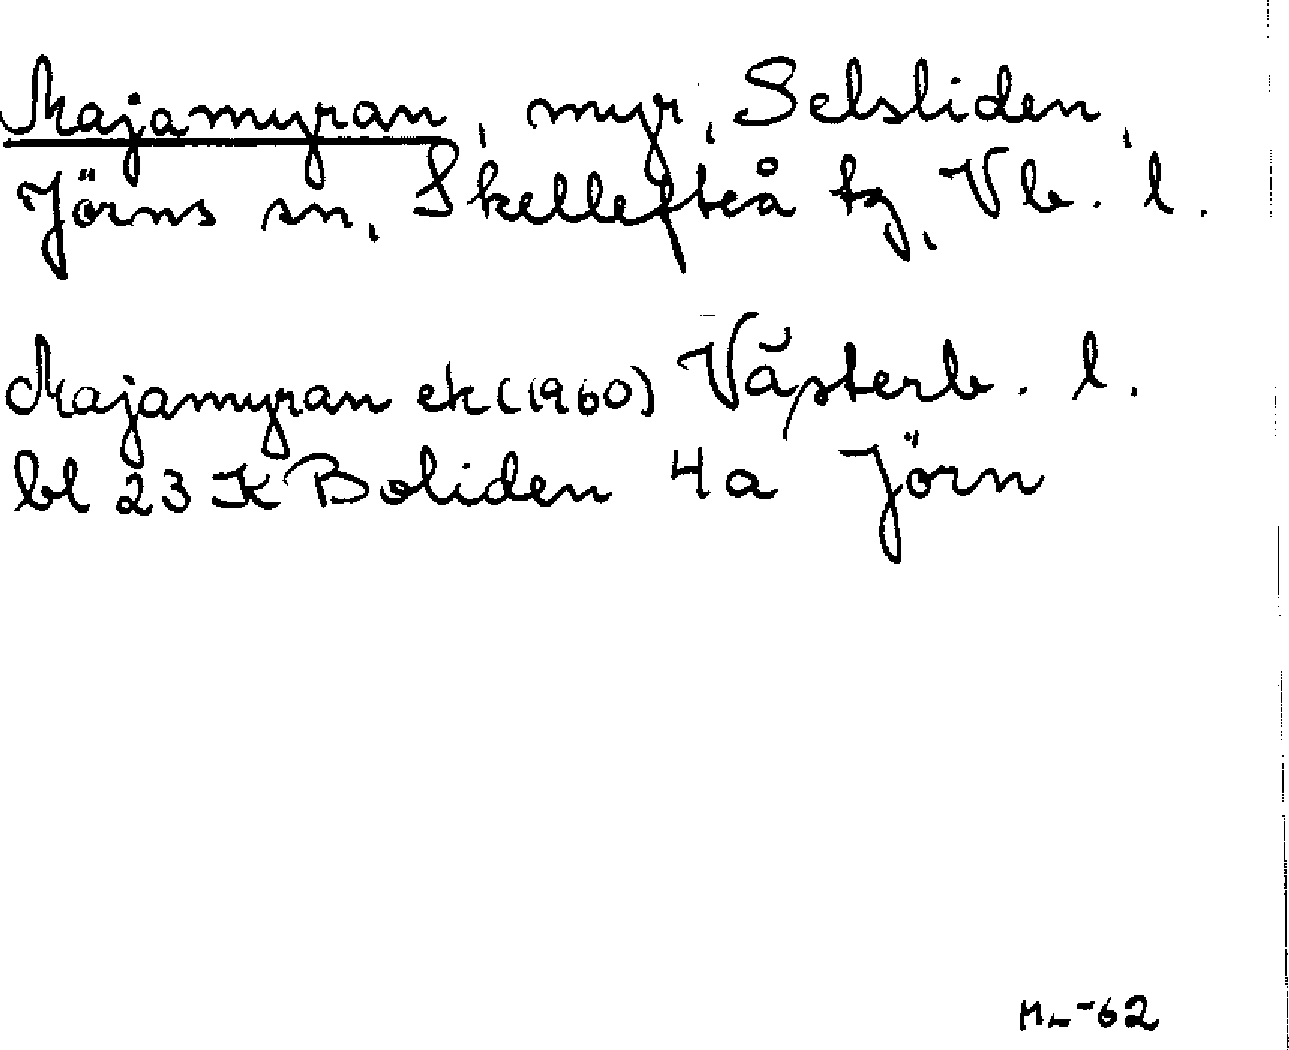 Majamyran, myr, Selsliden,
Jörns sn, Skellefteå tg, Vb. l.
Majamyran ek (1960) Västerb. l.
bl 23 K Boliden 4a Jörn
-62